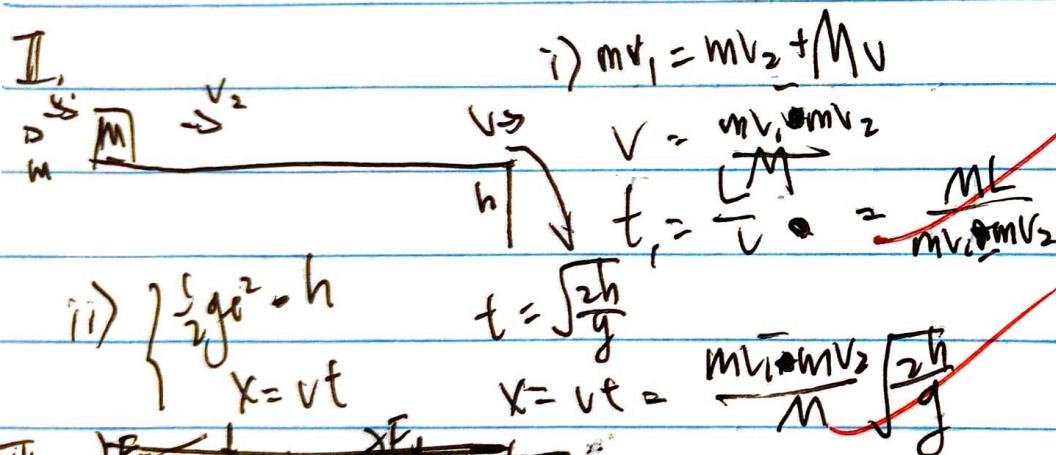 I.
i) mv₁ = mv₂ + Mv
m
M
→ v₂
v→
h
v = (mv₁ - mv₂)/M
t₁ = L/v = ML/(mv₁ - mv₂)
ii) { ½gt² = h
x = vt
t = √(2h/g)
x = vt = (mv₁ - mv₂)/M √(2h/g)